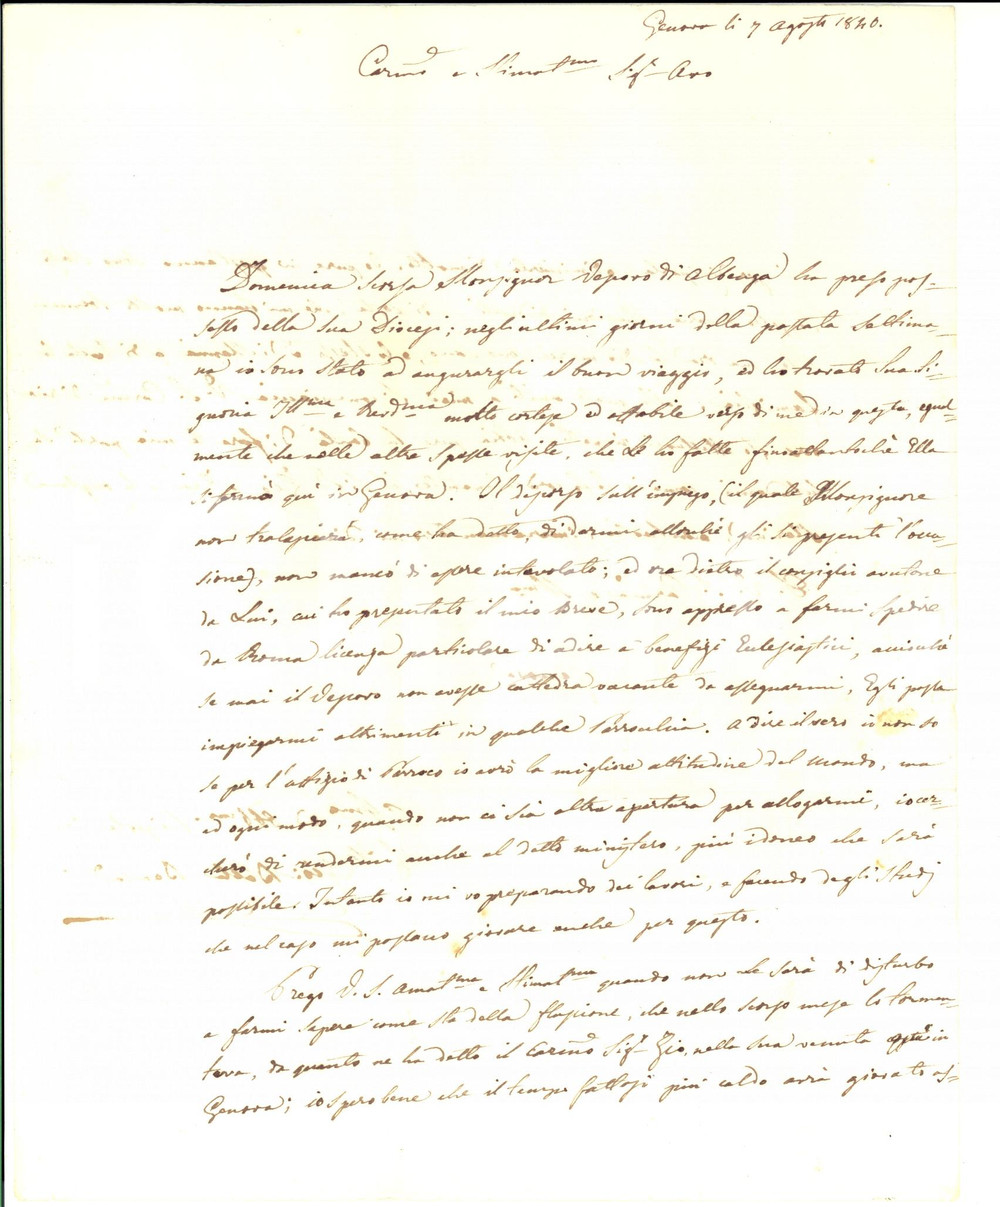 Genova li 7 Agosto 1840.
Carmo e Stimatmo Sigr Avo
Domenica scorsa Monsignor Vescovo di Albenga ha preso pos-
sesso della sua Diocesi; negli ultimi giorni della passata settima-
na io sono stato ad augurargli il buon viaggio, ed ho trovato Sua Si-
gnoria Illma e Revdma molto cortese ed affabile verso di me in questa, egual-
mente che nelle altre spesse visite, che Le ho fatte finoattantochè Ella
si fermò quì in Genova. Il discorso sull'impiego, (il quale Monsignore
non tralascierà, come ha detto, di darmi allorchè gli si presenti l'occa-
sione), non mancò di essere intavolato; ed ora dietro il consiglio avutone
da Lui, cui ho presentato il mio Breve, sono appresso a farmi spedire
da Roma licenza particolare di adire a benefizi Eclesiastici, acciochè
se mai il Vescovo non avesse cattedra vacante da assegnarmi, Egli possa
impiegarmi altrimenti in qualche Parrochia. A dire il vero io non so
se per l'uffizio di Parroco io avrò la migliore attitudine del mondo, ma
ad ogni modo, quando non ci sia altra apertura per allogarmi, io cer-
cherò di rendermi anche al detto ministero, più idoneo che sarà
possibile. Intanto io mi vo preparando dei lavori, e facendo degli studj
che nel caso mi possano giovare anche per questo.
Prego V. S. Amatma e Stimatma quando non Le sarà di disturbo
a farmi sapere come sta della flussione, che nello scorso mese lo tormen-
tava, da quanto ne ha detto il Carmo Sigr Zio, nella sua venuta in
Genova; io spero bene che il tempo fattosi più caldo avrà giovato as-